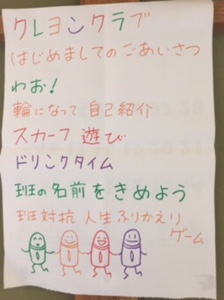 クレヨンクラブ
はじめましてのごあいさつ
わお!
輪になって 自己紹介
スカーフ 遊び
ドリンクタイム
班の名前をきめよう
班対抗 人生ふりかえり
ゲーム